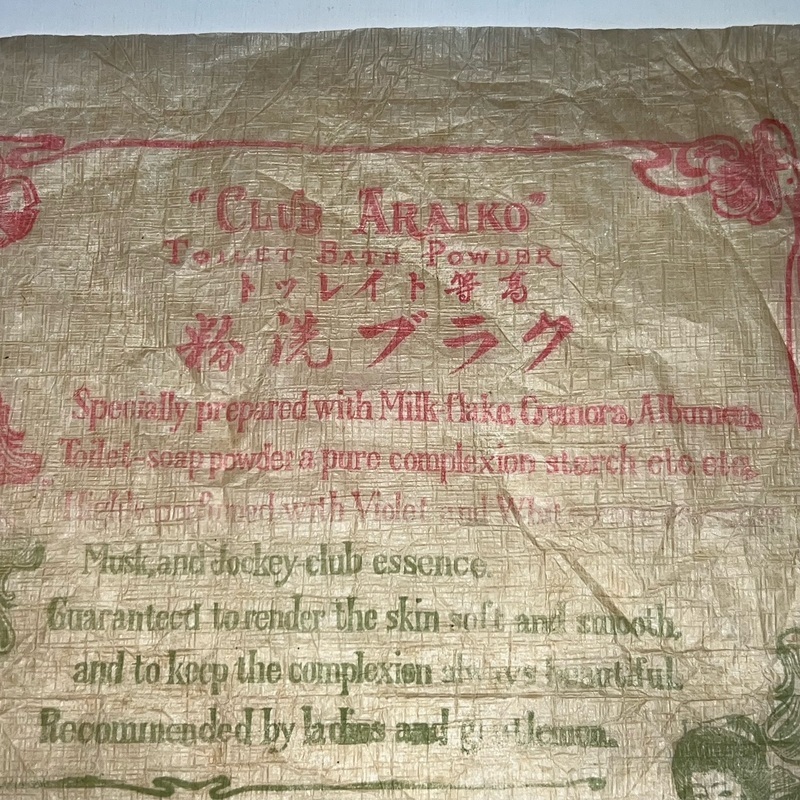 "CLUB ARAIKO"
TOILET BATH POWDER
高等トイレット
クラブ洗粉
Specially prepared with Milk-flake, Cremora, Albumen,
Toilet-soap powder a pure complexion starch etc. etc.
Highly perfumed with Violet and
Musk, and Jockey-club essence.
Guaranteed to render the skin soft and smooth,
and to keep the complexion always beautiful.
Recommended by ladies and gentlemen.